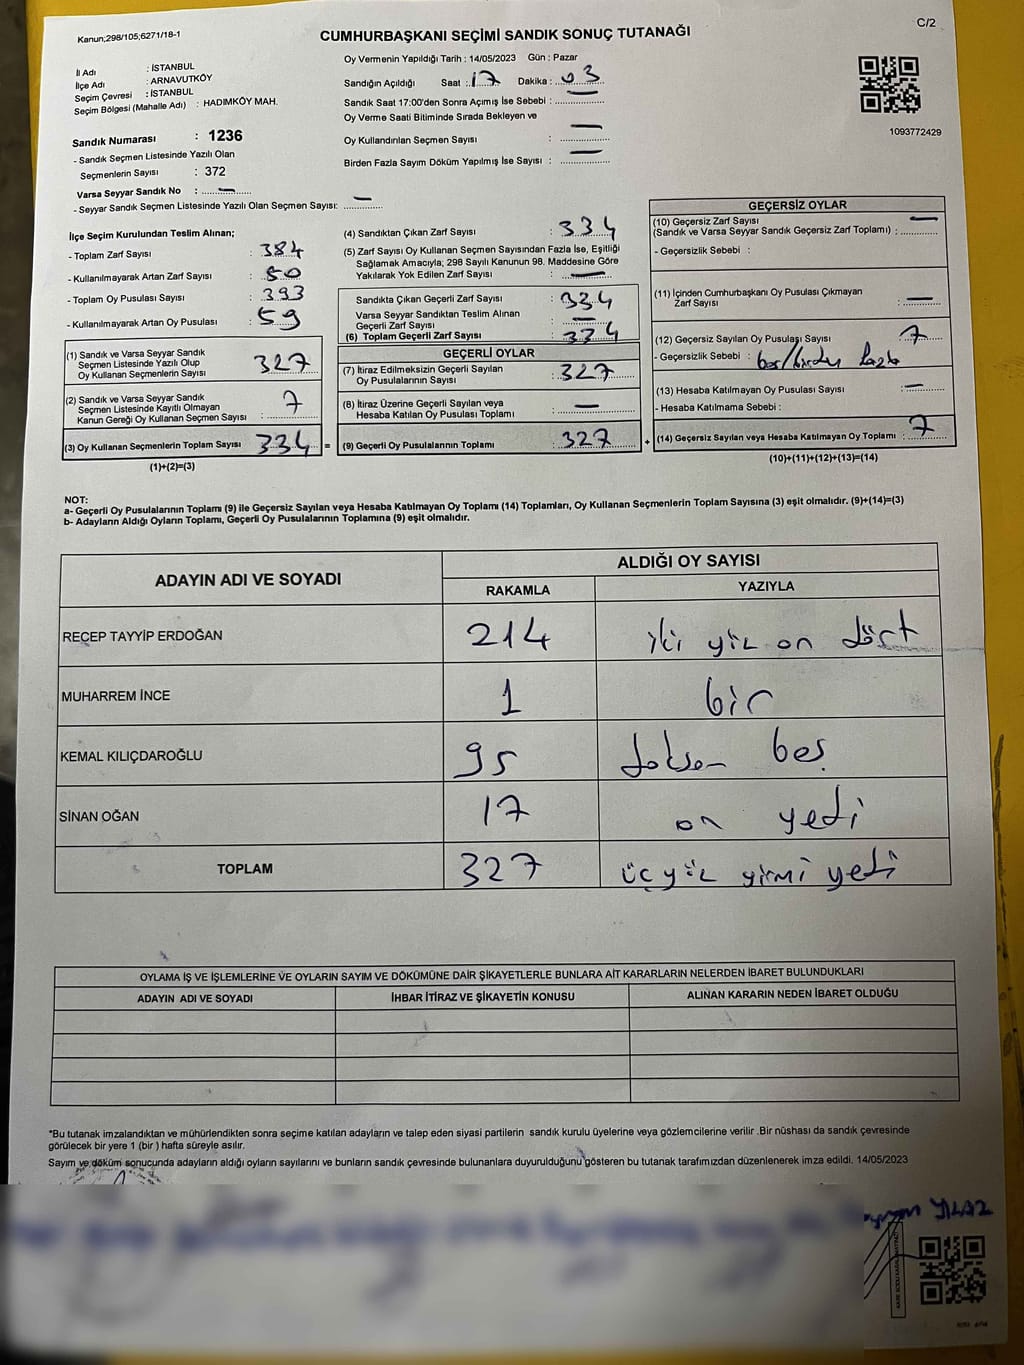 Kanun;298/105;6271/18-1
CUMHURBAŞKANI SEÇİMİ SANDIK SONUÇ TUTANAĞI
C/2
İl Adı : İSTANBUL
İlçe Adı : ARNAVUTKÖY
Seçim Çevresi : İSTANBUL
Seçim Bölgesi (Mahalle Adı) : HADIMKÖY MAH.
Sandık Numarası : 1236
- Sandık Seçmen Listesinde Yazılı Olan
Seçmenlerin Sayısı : 372
Varsa Seyyar Sandık No : —
- Seyyar Sandık Seçmen Listesinde Yazılı Olan Seçmen Sayısı: —
Oy Vermenin Yapıldığı Tarih : 14/05/2023 Gün : Pazar
Sandığın Açıldığı Saat : 17 Dakika : 03
Sandık Saat 17:00'den Sonra Açımış İse Sebebi : —
Oy Verme Saati Bitiminde Sırada Bekleyen ve
Oy Kullandırılan Seçmen Sayısı : —
Birden Fazla Sayım Döküm Yapılmış İse Sayısı : —
1093772429
İlçe Seçim Kurulundan Teslim Alınan;
- Toplam Zarf Sayısı : 384
- Kullanılmayarak Artan Zarf Sayısı : 50
- Toplam Oy Pusulası Sayısı : 393
- Kullanılmayarak Artan Oy Pusulası : 59
(1) Sandık ve Varsa Seyyar Sandık
Seçmen Listesinde Yazılı Olup
Oy Kullanan Seçmenlerin Sayısı 327
(2) Sandık ve Varsa Seyyar Sandık
Seçmen Listesinde Kayıtlı Olmayan
Kanun Gereği Oy Kullanan Seçmen Sayısı : 7
(3) Oy Kullanan Seçmenlerin Toplam Sayısı 334
(1)+(2)=(3)
(4) Sandıktan Çıkan Zarf Sayısı : 334
(5) Zarf Sayısı Oy Kullanan Seçmen Sayısından Fazla İse, Eşitliği
Sağlamak Amacıyla; 298 Sayılı Kanunun 98. Maddesine Göre
Yakılarak Yok Edilen Zarf Sayısı : —
Sandıkta Çıkan Geçerli Zarf Sayısı : 334
Varsa Seyyar Sandıktan Teslim Alınan
Geçerli Zarf Sayısı : —
(6) Toplam Geçerli Zarf Sayısı : 334
GEÇERLİ OYLAR
(7) İtiraz Edilmeksizin Geçerli Sayılan
Oy Pusulalarının Sayısı : 327
(8) İtiraz Üzerine Geçerli Sayılan veya
Hesaba Katılan Oy Pusulası Toplamı : —
= (9) Geçerli Oy Pusulalarının Toplamı : 327
GEÇERSİZ OYLAR
(10) Geçersiz Zarf Sayısı
(Sandık ve Varsa Seyyar Sandık Geçersiz Zarf Toplamı) : —
- Geçersizlik Sebebi :
(11) İçinden Cumhurbaşkanı Oy Pusulası Çıkmayan
Zarf Sayısı : —
(12) Geçersiz Sayılan Oy Pusulası Sayısı : 7
- Geçersizlik Sebebi : boş/birden fazla
(13) Hesaba Katılmayan Oy Pusulası Sayısı : —
- Hesaba Katılmama Sebebi :
+ (14) Geçersiz Sayılan veya Hesaba Katılmayan Oy Toplamı : 7
(10)+(11)+(12)+(13)=(14)
NOT:
a- Geçerli Oy Pusulalarının Toplamı (9) ile Geçersiz Sayılan veya Hesaba Katılmayan Oy Toplamı (14) Toplamları, Oy Kullanan Seçmenlerin Toplam Sayısına (3) eşit olmalıdır. (9)+(14)=(3)
b- Adayların Aldığı Oyların Toplamı, Geçerli Oy Pusulalarının Toplamına (9) eşit olmalıdır.
ADAYIN ADI VE SOYADI
ALDIĞI OY SAYISI
RAKAMLA YAZIYLA
RECEP TAYYİP ERDOĞAN 214 iki yüz on dört
MUHARREM İNCE 1 bir
KEMAL KILIÇDAROĞLU 95 doksan beş
SİNAN OĞAN 17 on yedi
TOPLAM 327 üç yüz yirmi yedi
OYLAMA İŞ VE İŞLEMLERİNE VE OYLARIN SAYIM VE DÖKÜMÜNE DAİR ŞİKAYETLERLE BUNLARA AİT KARARLARIN NELERDEN İBARET BULUNDUKLARI
ADAYIN ADI VE SOYADI İHBAR İTİRAZ VE ŞİKAYETİN KONUSU ALINAN KARARIN NEDEN İBARET OLDUĞU
*Bu tutanak imzalandıktan ve mühürlendikten sonra seçime katılan adayların ve talep eden siyasi partilerin sandık kurulu üyelerine veya gözlemcilerine verilir .Bir nüshası da sandık çevresinde
görülecek bir yere 1 (bir ) hafta süreyle asılır.
Sayım ve döküm sonucunda adayların aldığı oyların sayılarını ve bunların sandık çevresinde bulunanlara duyurulduğunu gösteren bu tutanak tarafımızdan düzenlenerek imza edildi. 14/05/2023
YILAZ